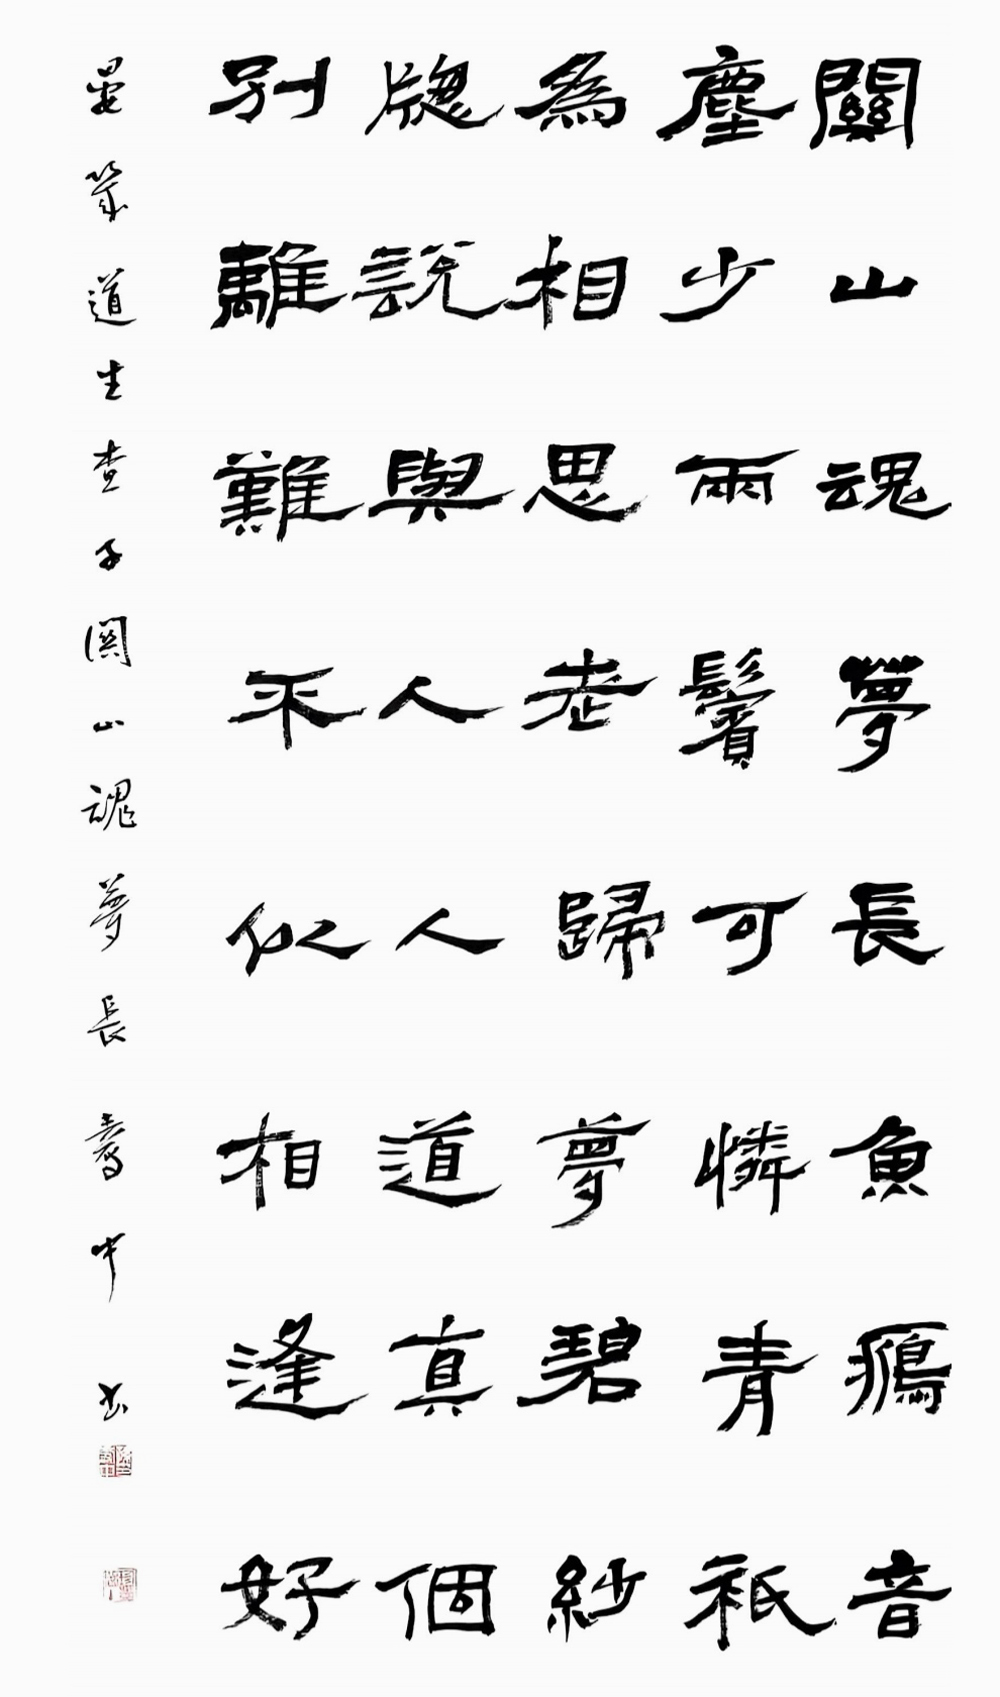 關山魂夢長魚鴈音
塵少兩鬢可憐青祇
為相思老歸夢碧紗
牕說與人人道真個
別離難不似相逢好
晏幾道生查子関山魂夢長 中書